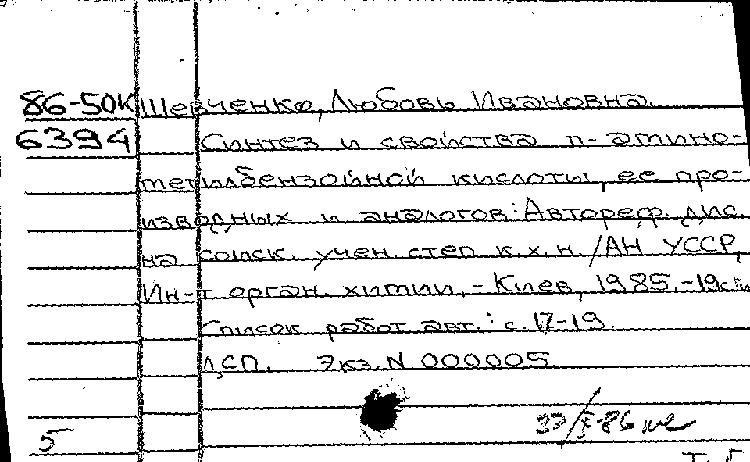 86-50К Шевченко, Любовь Ивановна.
6394 Синтез и свойства п-амино-
метилбензойной кислоты, ее про-
изводных и аналогов: Автореф. дис.
на соиск. учен. степ. к.х.н./АН УССР,
Ин-т орган. химии, - Киев, 1985. - 19с.
Список работ авт.: с. 17-19.
ДСП. Экз. N 000005
5